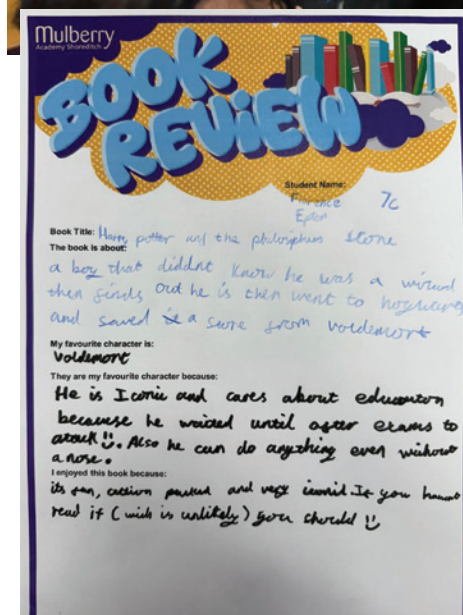 Mulberry
Academy Shoreditch
BOOK
REVIEW
Student Name:
Florence 7c
Book Title: Harry potter and the philosophers stone
The book is about:
a boy that diddnt know he was a wizard
then finds out he is then went to hogwarts
and saved a stone from voldemort
My favourite character is:
Voldemort
They are my favourite character because:
He is Iconic and cares about education
because he waited until after exams to
attack. Also he can do anything even without
a nose.
I enjoyed this book because:
its fun, action packed and very iconic. If you havent
read it (wich is unlikely) you should